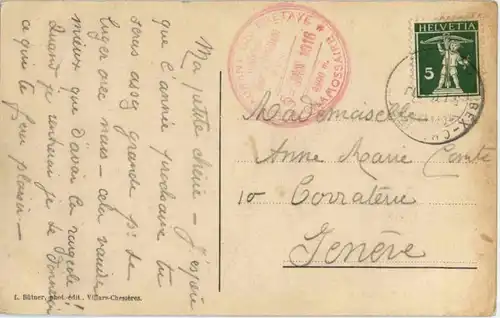 Ma petite chérie - J'espère
que l'année prochaine tu
seras assez grande pr. te
luger avec nous - cela vaudra
mieux que d'avoir la rougeole!
Quand je rentrerai je te donnerai
ce qui te fera plaisir -
1918
HELVETIA
5
Mademoiselle
Anne Marie Comte
10 Corraterie
Genève
L. Bütner, phot. édit. Villars-Chesières.